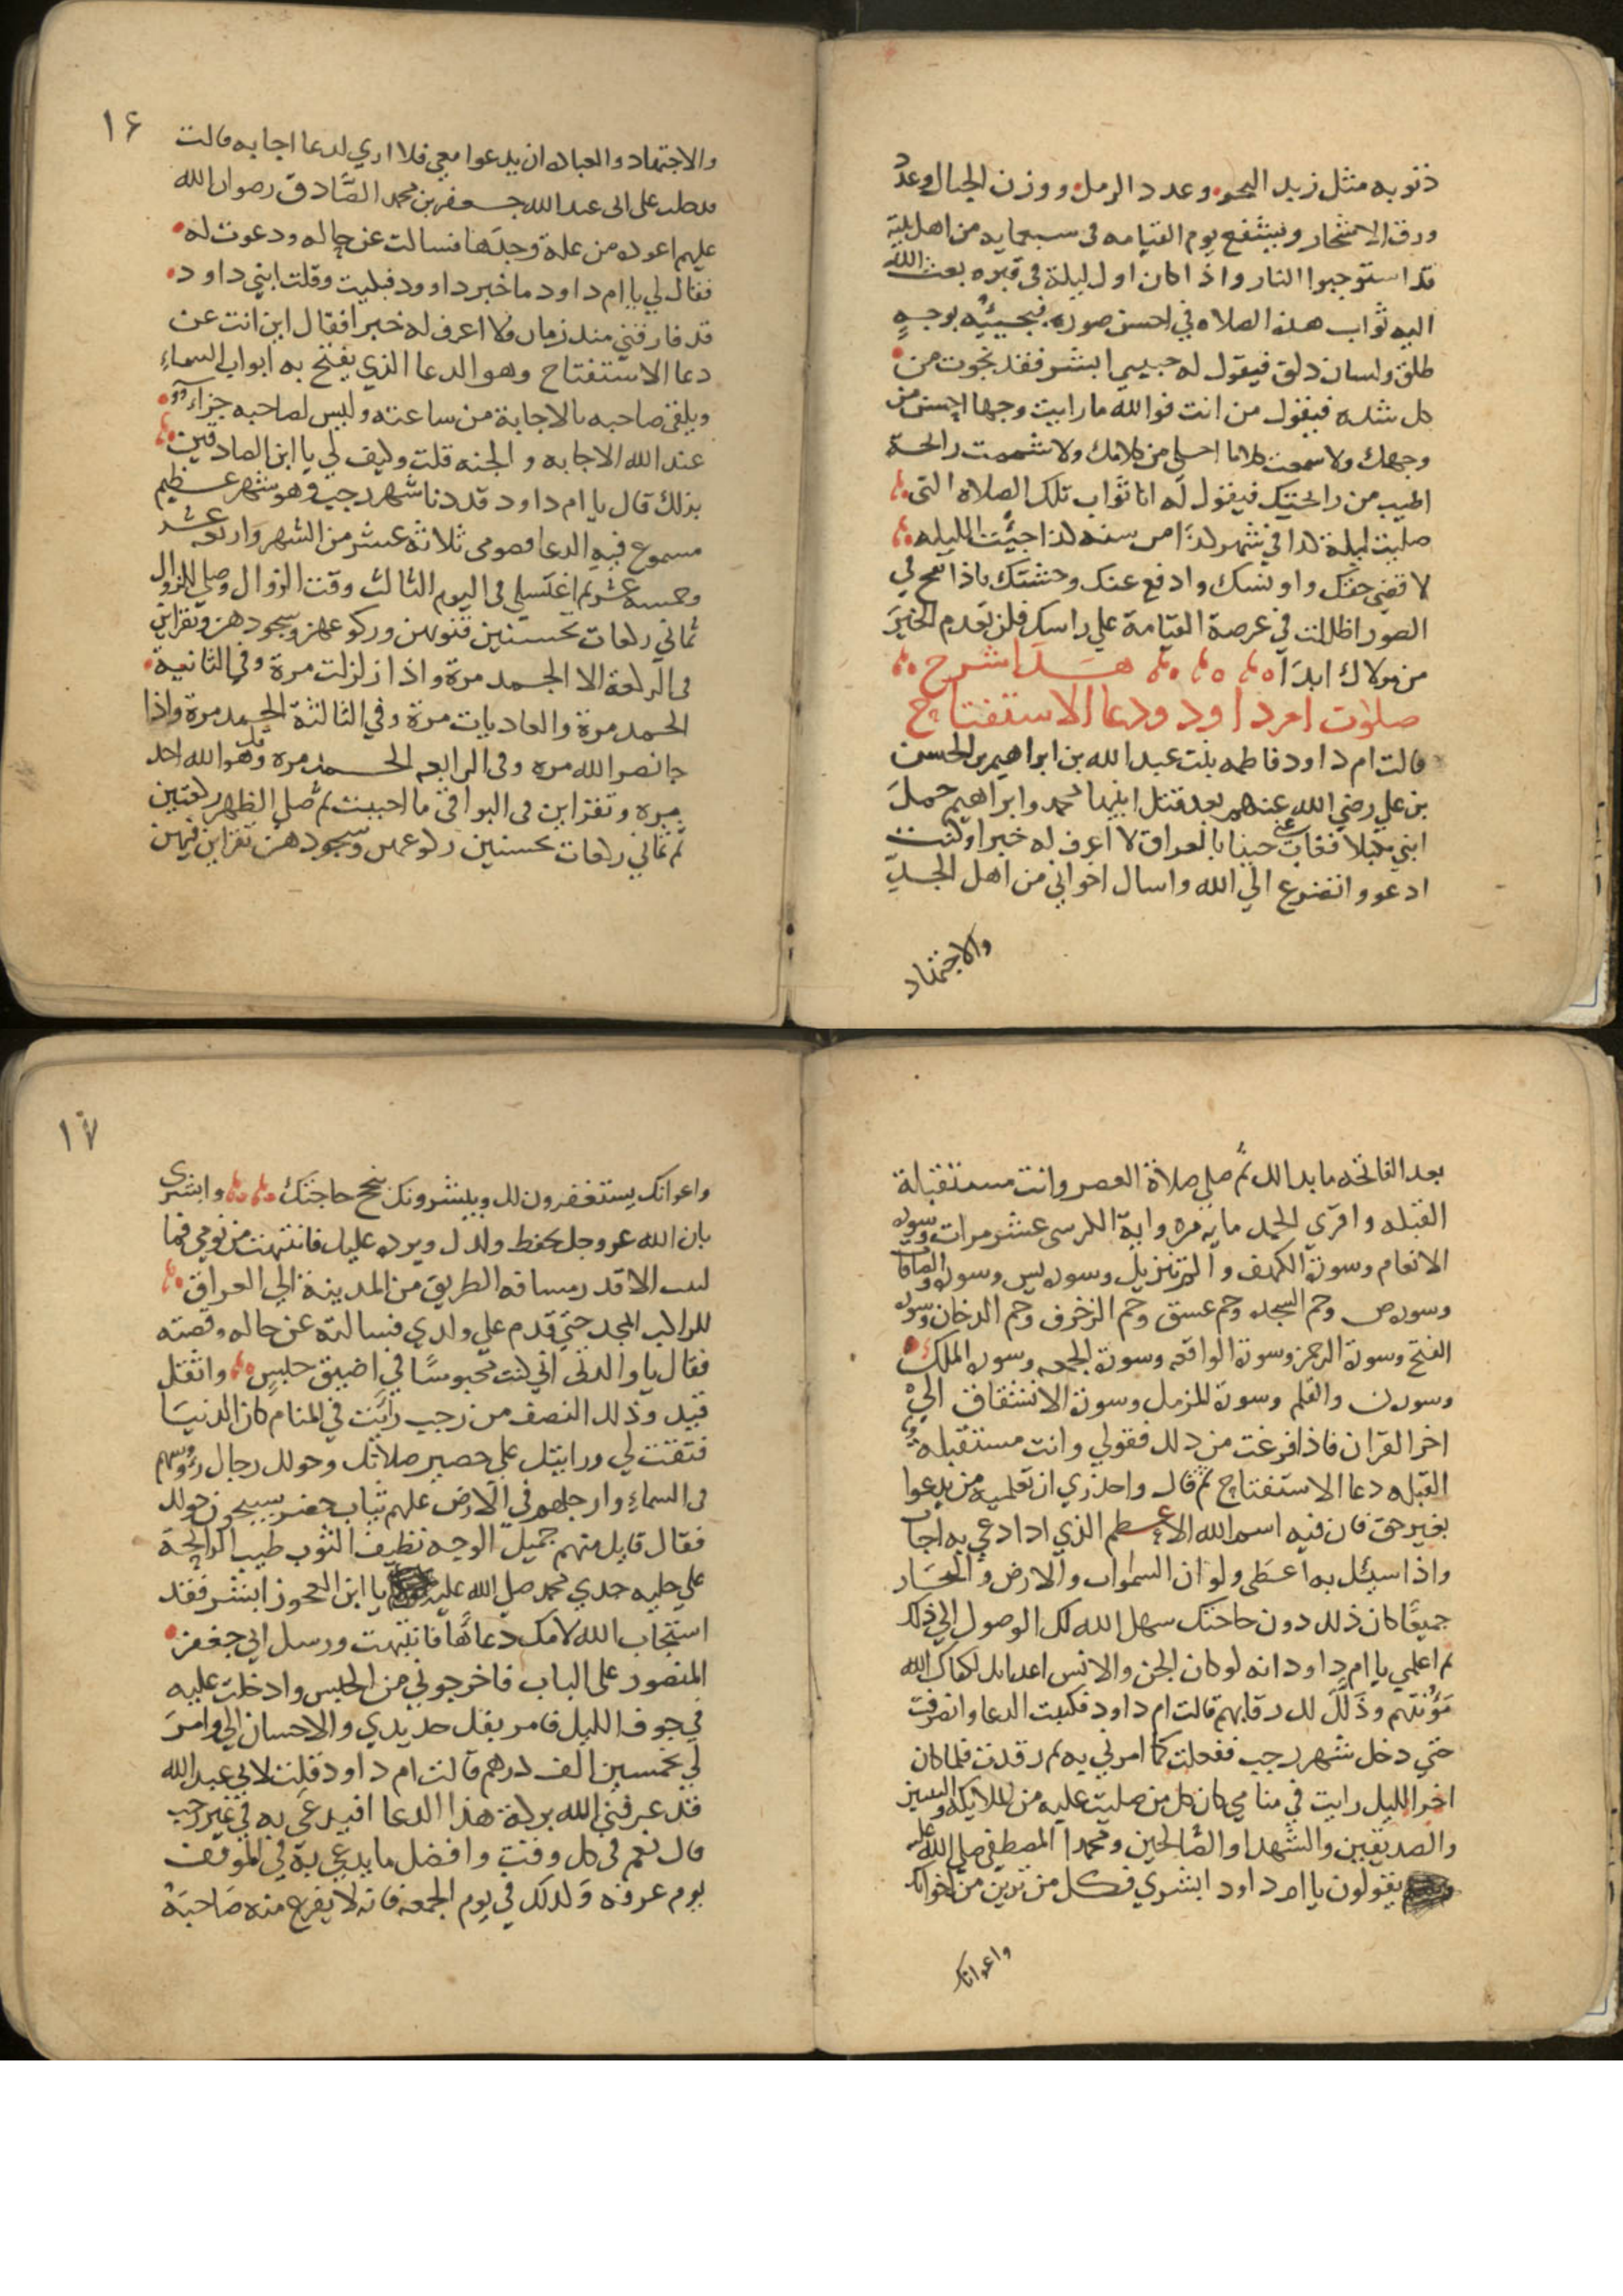 ذنوبه مثل زبد البحر وعدد الرمل ووزن الجبال وعدد
ورق الاشجار ويشفع يوم القيامه فى سبعمايه من اهل بيته
قد استوجبوا النار واذا كان اول ليلة في قبره بعث الله
اليه ثواب هذه الصلاه في احسن صوره فيجييه بوجه
طلق ولسان دلق فيقول له حبيبي ابشر فقد نجوت من
كل شده فيقول من انت فوالله ما رايت وجها احسن من
وجهك ولا سمعت كلاما احلي من كلامك ولا شممت رايحة
اطيب من رايحتك فيقول له انا ثواب تلك الصلاه التي
صليت ليلة كذا في شهر كذا من سنه كذا جيئت الليله
لا قضي حقك واونسك وادفع عنك وحشتك فاذا نفخ في
الصور اظللت في عرصة القيامة علي راسك فلن تعدم الخير
من مولاك ابدا هذا شرح
صلوٰت ام داود ودعا الاستفتاح
قالت ام داود فاطمه بنت عبد الله بن ابراهيم بن الحسن
بن علي رضي الله عنهم بعد قتل ابنيها محمد وابراهيم حمل
ابني مكبلا فغاب عني حينا بالعراق لا اعرف له خبرا وكنت
ادعو واتضرع الي الله واسال اخواني من اهل الجد
والاجتهاد
١٦
والاجتهاد والعباده ان يدعوا معي فلا اري لدعا اجابه قالت
فدخلت على ابى عبد الله جعفر بن محمد الصادق رضوان الله
عليهم اعوده من علة وجدها فسالت عن حاله ودعوت له
فقال لي يا ام داود ما خبر داوود فبكيت وقلت ابني داود
قد فارقني منذ زمان ولا اعرف له خبرا فقال اين انت عن
دعا الاستفتاح وهو الدعا الذي يفتح به ابواب السماء
ويلقى صاحبه بالاجابة من ساعته وليس لصاحبه جزاء
عند الله الا اجابه والجنه قلت وكيف لي يا ابن الصادقين
بذلك قال يا ام داود قد دنا شهر رجب وهو شهر عظيم
مسموع فيه الدعا فصومى ثلاثه عشر من الشهر واربعه عشر
وخمسه عشر ثم اغتسلي فى اليوم الثالث وقت الزوال وصلي للزوال
ثماني ركعات تحسنين قنوتهن وركوعهن وسجودهن وتقراين
فى الركعة الاولى الحمد مرة واذا زلزلت مرة وفي الثانية
الحمد مرة والعاديات مرة وفي الثالثة الحمد مرة واذا
جا نصر الله مره وفى الرابعه الحمد مره وقل هو الله احد
مره وتقراين فى البواقي ما احببت ثم صلي الظهر ركعتين
ثم ثماني ركعات تحسنين ركوعهن وسجودهن تقراين فيهن
بعد الفاتحه ما بدا لك ثم صلي صلاة العصر وانت مستقبلة
القبله واقري الحمد مايه مره واية الكرسى عشر مرات وسوره
الانعام وسورة الكهف والم تنزيل وسوره يس وسوره والصافات
وسوره ص وحم السجده وحم عسق وحم الزخرف وحم الدخان وسوره
الفتح وسورة الرحمن وسورة الواقعه وسورة الجمعه وسوره الملك
وسوره ن والقلم وسورة المزمل وسورة الانشقاق الي
اخر القران فاذا فرغت من ذلك فقولي وانت مستقبله
القبله دعا الاستفتاح ثم قال واحذري ان تعلميه من يدعوا
بغير حق فان فيه اسم الله الاعظم الذي اذا دعي به اجاب
واذا سيل به اعطى ولو ان السموات والارض والبحار
جميعا كان ذلك دون حاجتك سهل الله لك الوصول الي ذلك
ثم اعلمي يا ام داود انه لو كان الجن والانس اعدايك لكفاك الله
مؤنتهم وذلل لك رقابهم قالت ام داود فكتبت الدعا وانصرفت
حتي دخل شهر رجب ففعلت كما امرني به ثم رقدت فلما كان
اخر الليل رايت في منامي كان كل من صليت عليه من الملايكه والنبيين
والصديقين والشهدا والصالحين ومحمدا المصطفى صلي الله عليه
يقولون يا ام داود ابشري فكل من ترين من اخوانك
واعوانك
١٧
واعوانك يستغفرون لك ويبشرونك بنجح حاجتك وابشرى
بان الله عز وجل يحفظ ولدك ويرده عليك فانتبهت من نومي فما
لبثت الا قدر مسافه الطريق من المدينة الي العراق
للراكب المجد حتي قدم علي ولدي فسالته عن حاله وقصته
فقال يا والدتى اني كنت محبوسا في اضيق حبس واثقل
قيد وذلك النصف من رجب رايت في المنام كان الدنيا
فتقت لي ورايتك علي حصير صلاتك وحولك رجال رؤوسهم
فى السماء وارجلهم في الارض عليهم ثياب خضر يسبحون حولك
فقال قايل منهم جميل الوجه نظيف الثوب طيب الرايحة
علي حليه جدي محمد صلي الله عليه يا ابن العجوز ابشر فقد
استجاب الله لامك دعائها فانتبهت ورسل ابي جعفر
المنصور على الباب فاخرجوني من الحبس وادخلت عليه
في جوف الليل فامر بفك حديدي والاحسان الي وامر
لي بخمسين الف درهم قالت ام داود فقلت لابي عبد الله
قد عرفني الله بركة هذا الدعا افيدعى به في غير رجب
قال نعم فى كل وقت وافضل ما يدعي به في الموقف
يوم عرفه وكذلك في يوم الجمعه فانه لا يفرغ منه صاحبه